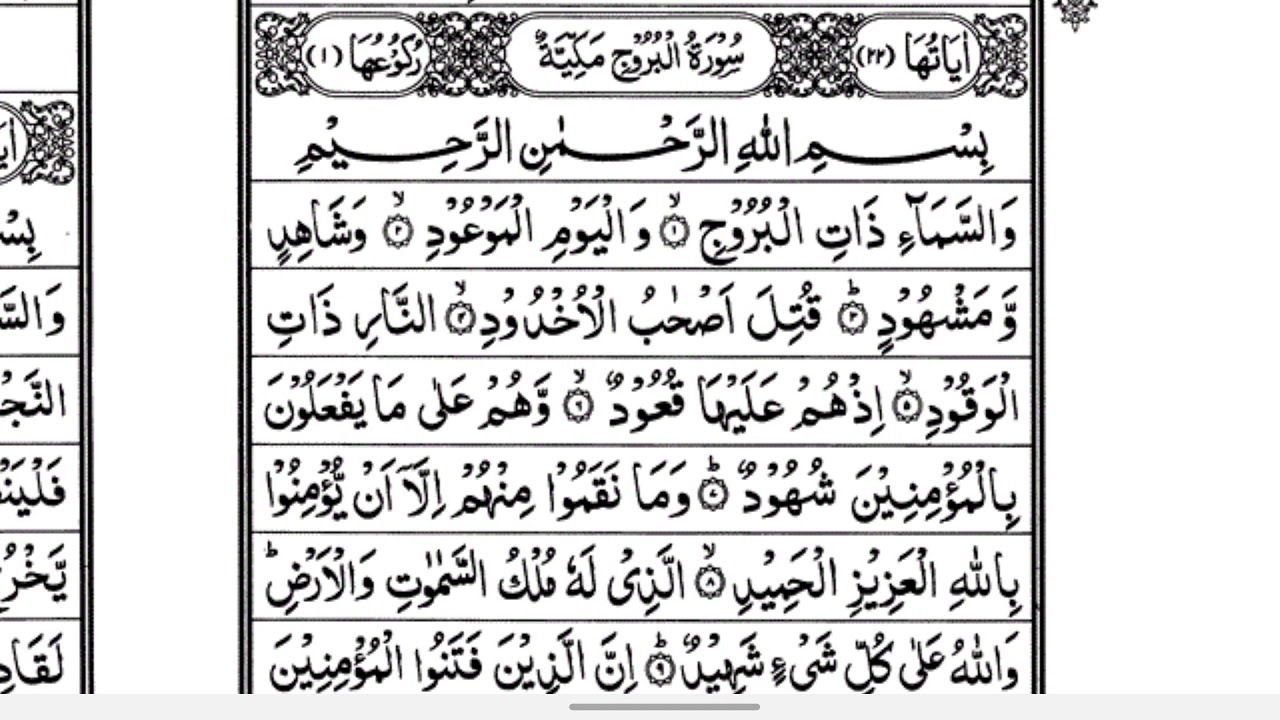 اٰيَاتُهَا (٢٢) سُوْرَةُ الْبُرُوْجِ مَكِّيَّةٌ رُكُوْعُهَا (١)
بِسْمِ اللّٰهِ الرَّحْمٰنِ الرَّحِيْمِ
وَالسَّمَآءِ ذَاتِ الْبُرُوْجِ ۙ‏﴿١﴾ وَالْيَوْمِ الْمَوْعُوْدِ ۙ‏﴿٢﴾ وَشَاهِدٍ
وَّمَشْهُوْدٍ ؕ‏﴿٣﴾ قُتِلَ اَصْحٰبُ الْاُخْدُوْدِ ۙ‏﴿٤﴾ النَّارِ ذَاتِ
الْوَقُوْدِ ۙ‏﴿٥﴾ اِذْ هُمْ عَلَيْهَا قُعُوْدٌ ۙ‏﴿٦﴾ وَّهُمْ عَلٰى مَا يَفْعَلُوْنَ
بِالْمُؤْمِنِيْنَ شُهُوْدٌ ؕ‏﴿٧﴾ وَمَا نَقَمُوْا مِنْهُمْ اِلَّاۤ اَنْ يُّؤْمِنُوْا
بِاللّٰهِ الْعَزِيْزِ الْحَمِيْدِ ۙ‏﴿٨﴾ الَّذِىْ لَهٗ مُلْكُ السَّمٰوٰتِ وَالْاَرْضِ ؕ
وَاللّٰهُ عَلٰى كُلِّ شَىْءٍ شَهِيْدٌ ؕ‏﴿٩﴾ اِنَّ الَّذِيْنَ فَتَنُوا الْمُؤْمِنِيْنَ